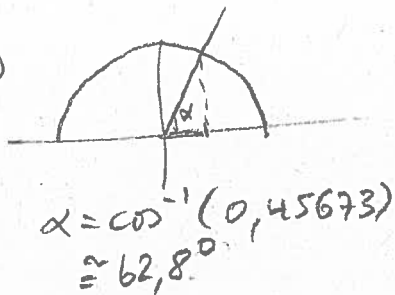 )
α
α = cos⁻¹ (0,45673)
≅ 62,8°